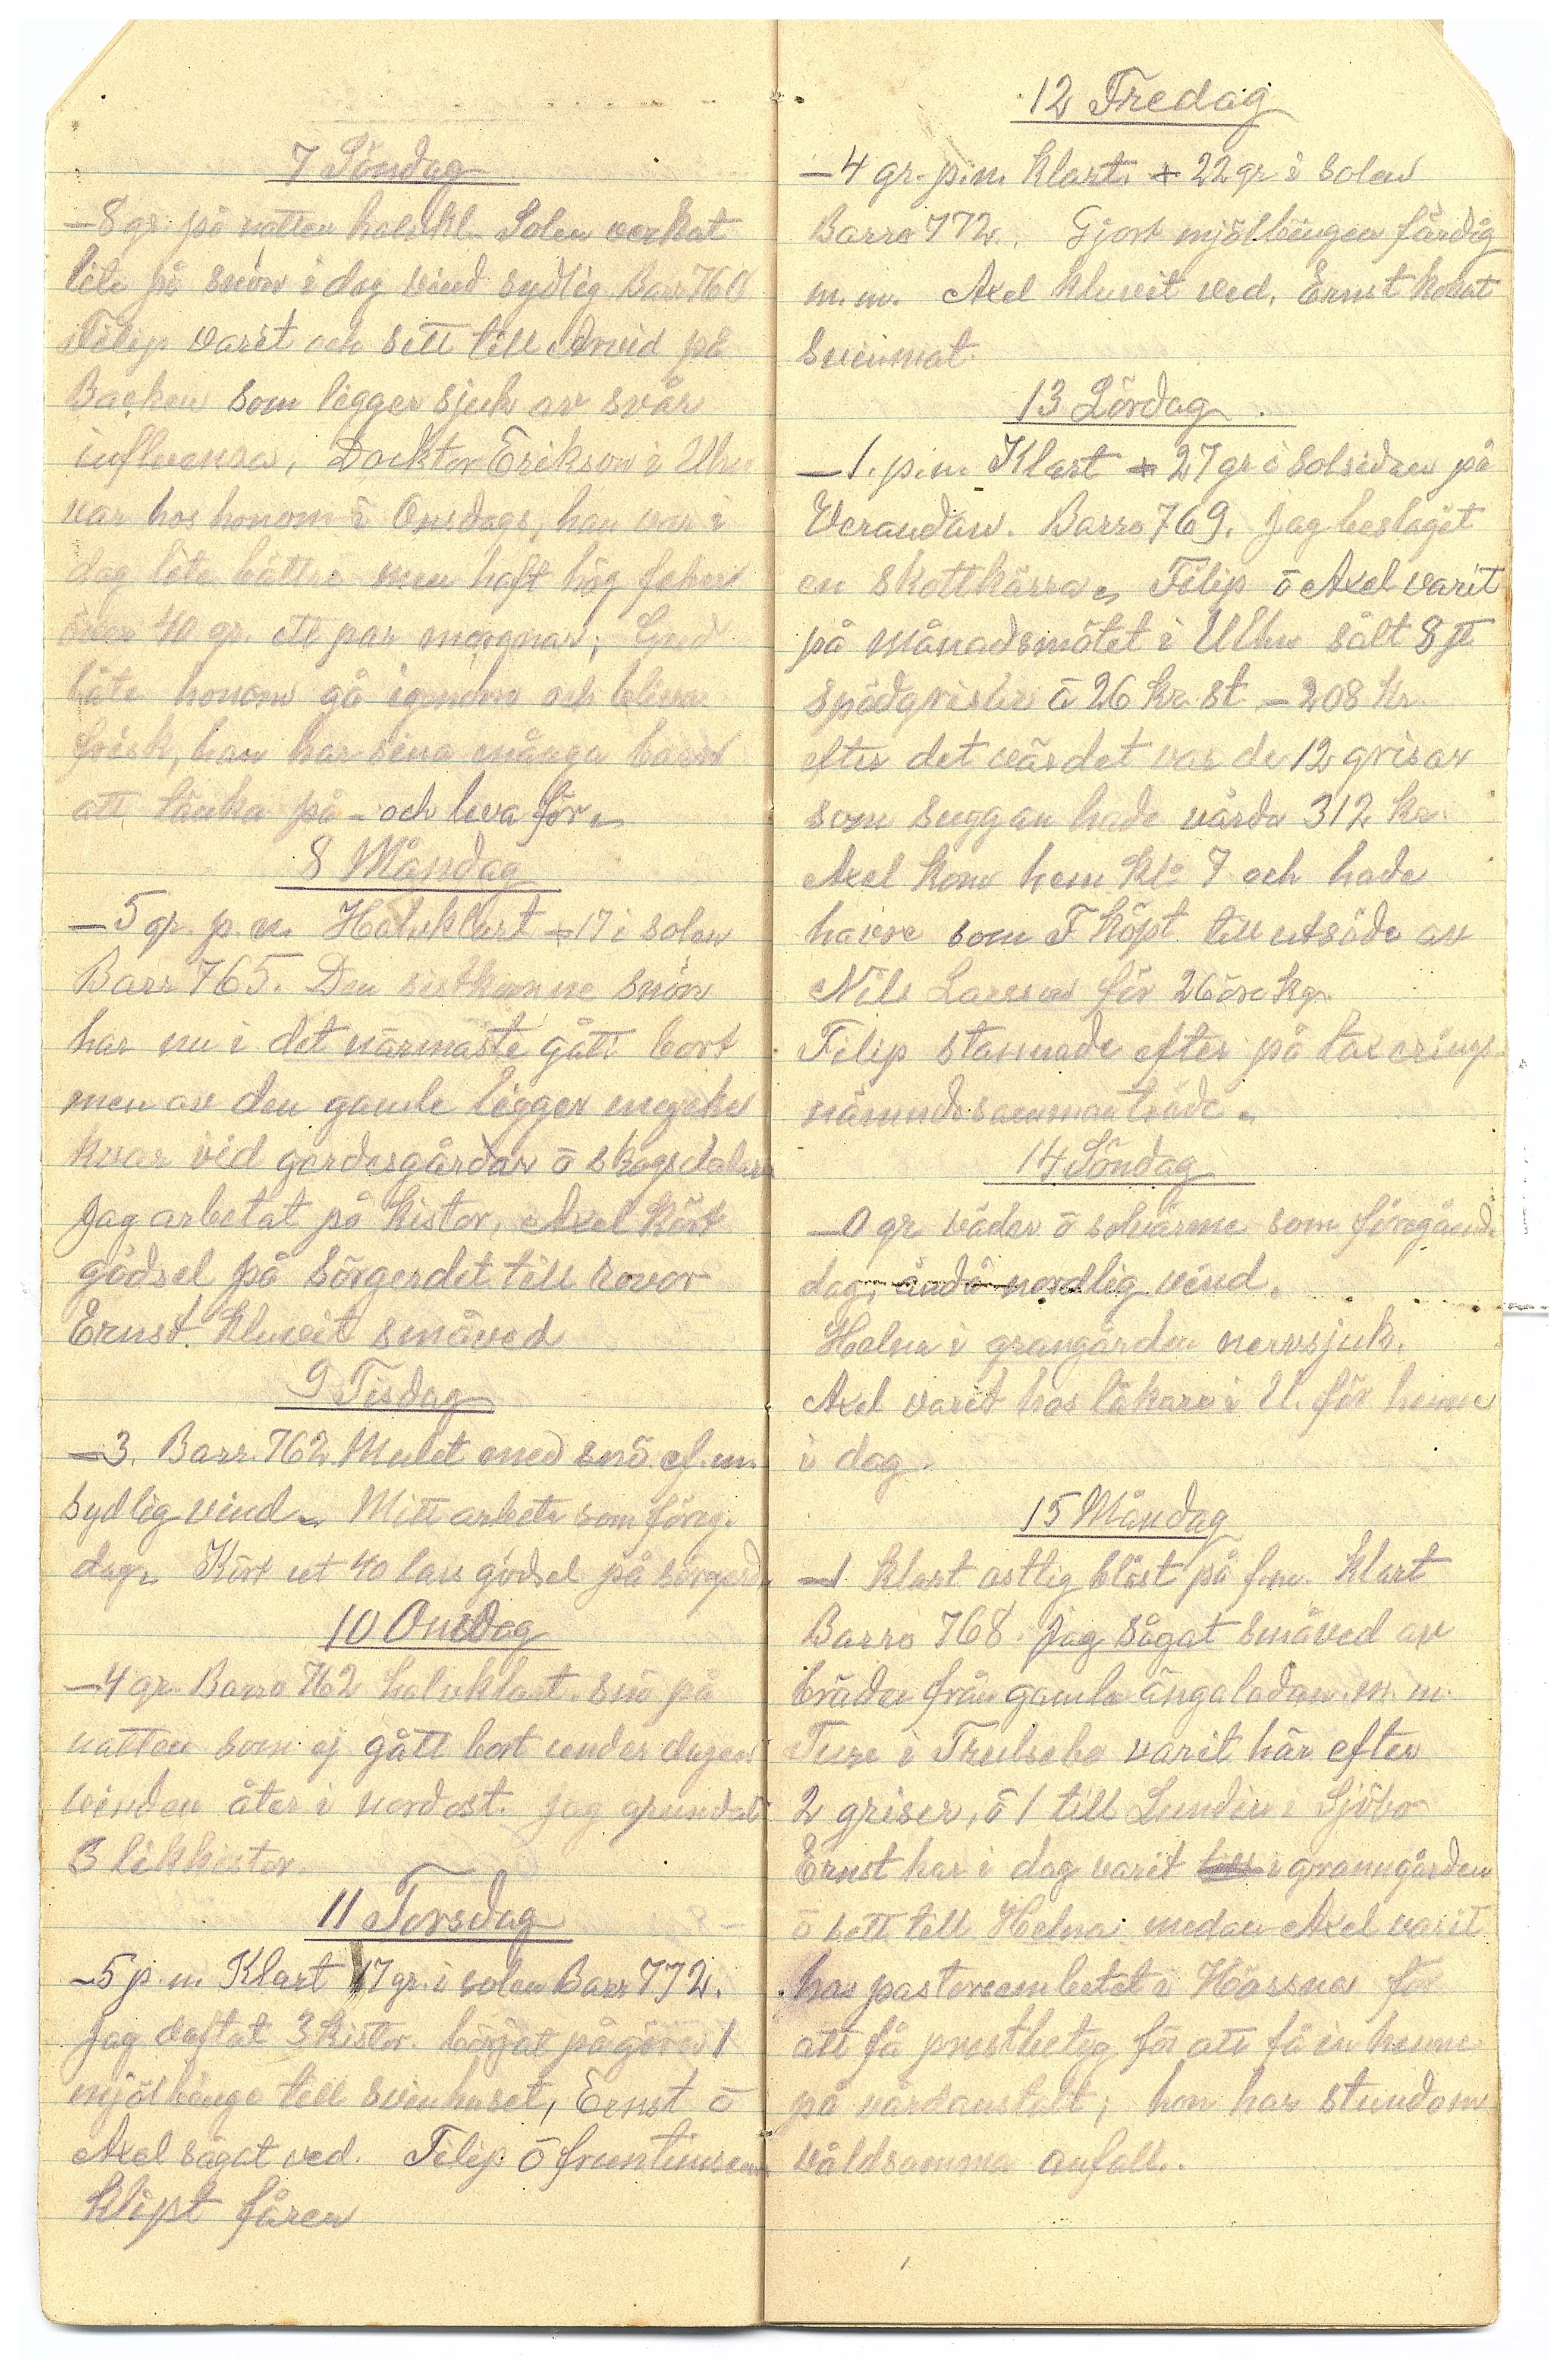 7 Söndag
–8 gr. på natten halvkl. Solen verkat
lite på snön i dag vind sydlig Barr 760
Filip varit och sett till Arvid på
Backen som ligger sjuk av svår
influensa, Docktor Erikson i Ulhn
var hos honom i Onsdags, han var i
dag lite bättre men haft hög feber
över 40 gr. ett par morgnar, Gud
låte honom gå igenom och bliva
frisk, han har sina många barn
att tänka på – och leva för.
8 Måndag
–5 gr. p.m. Halvklart +17 i solen
Barr 765. Den sistkomne snön
har nu i det närmaste gått bort
men av den gamle ligger mycke
kvar vid gerdesgårdar ō skogsdalar
Jag arbetat på kistor, Axel kört
gödsel på Sörgerdet till rovor
Ernst kluvit småved
9 Tisdag
–3. Barr. 762 Mulet med snö ef.m.
sydlig vind. Mitt arbete som föreg.
dag. Kört ut 40 lass gödsel på sörgerd.
10 Onsdag
–4 gr. Barro 762 halvklart. snö på
natten som ej gått bort under dagen
vinden åter i nordost. Jag grundat
3 likkistor.
11 Torsdag
–5 p.m Klart 17 gr. i solen Barr 772.
Jag daftat 3 kistor. börjat på göra 1
mjölbinge till svinhuset, Ernst ō
Axel sågat ved. Filip ō fruntimren
klipt fåren
12 Fredag
–4 gr. p.m. klart. + 22 gr i solen
Barro 772. Gjort mjölbingen färdig
m.m. Axel kluvit ved, Ernst kokat
svinmat.
13 Lördag.
–1. p.m. Klart + 27 gr i solsidan på
Verandan. Barro 769. Jag beslagit
en skottkärra. Filip ō Axel varit
på månadsmötet i Ulhn sålt 8 st
spädgrisar á 26 kr. st – 208 kr.
efter det värdet var de 12 grisar
som suggan hade värda 312 kr.
Axel kom hem kl: 7 och hade
havre som F köpt till utsäde av
Nils Larsson för 26 öre kg.
Filip stannade efter på taxerings-
nämndssammanträde.
14 Söndag
–0 gr väder ō solvärme som föregående
dag, ändå nordlig vind.
Helna i grangården nervsjuk.
Axel varit hos läkare i U. för henne
i dag.
15 Måndag
–1 Klart ostlig blåst på f.m. Klart
Barro 768. Jag sågat småved av
bräder från gamla ängaladan m.m.
Ture i Trulsebo varit här efter
2 griser, ō 1 till Lundin i Sjöbo
Ernst har i dag varit i granngården
ō sett till Helna medan Axel varit
hos pastorsembetet i Hössna för
att få prestbetyg för att få in henne
på vårdanstalt; hon har stundom
våldsamma anfall.